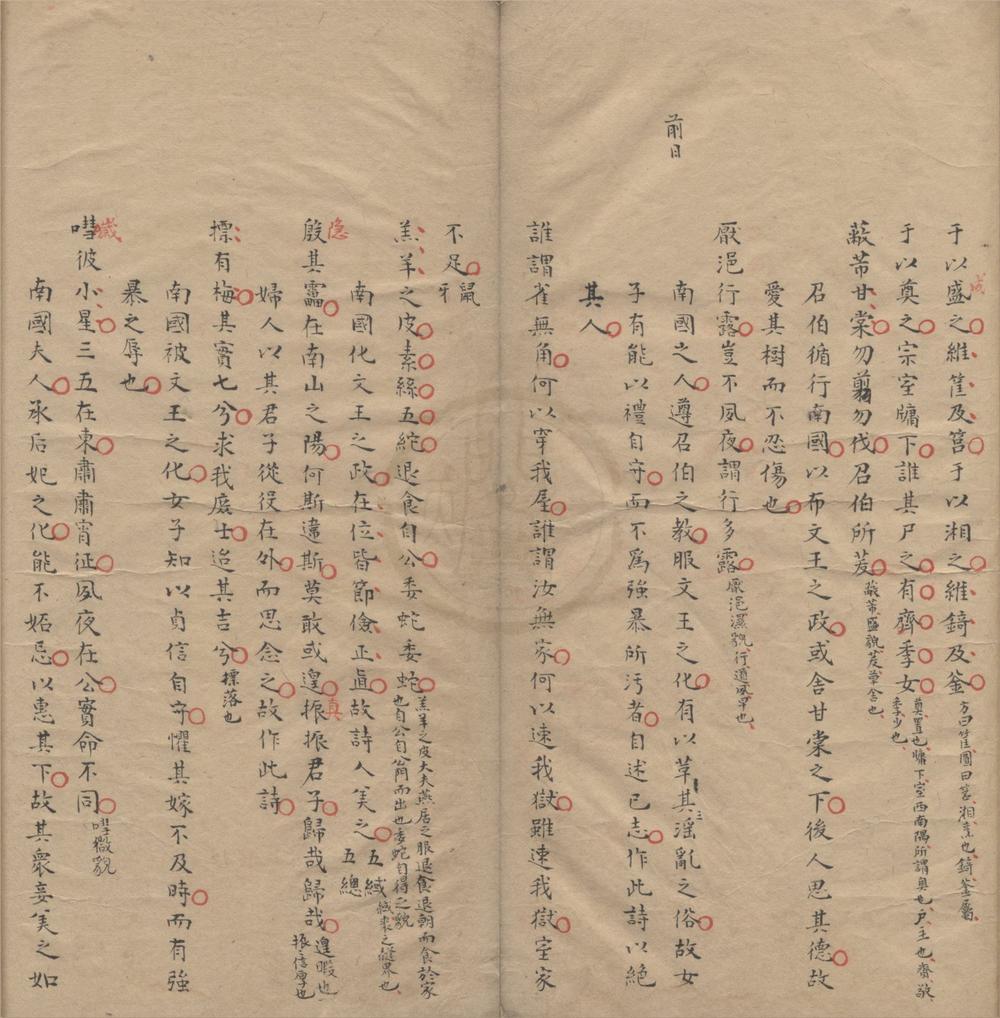 于以盛之維筐及筥于以湘之維錡及釜方曰筐圓曰筥湘烹也錡釜屬
成
于以奠之宗室牖下誰其尸之有齊季女奠置也牖下室西南隅所謂奧也尸主也齊敬季少也
蔽芾甘棠勿翦勿伐召伯所茇蔽芾盛貌茇草舍也
召伯循行南國以布文王之政或舍甘棠之下後人思其德故
愛其樹而不忍傷也
厭浥行露豈不夙夜謂行多露厭浥濕貌行道夙早也
前日
南國之人遵召伯之教服文王之化有以革其淫亂之俗故女
子有能以禮自守而不為強暴所污者自述己志作此詩以絕
其人
誰謂雀無角何以穿我屋誰謂汝無家何以速我獄雖速我獄室家
不足鼠牙
羔羊之皮素絲五紽退食自公委蛇委蛇羔羊之皮大夫燕居之服退食退朝而食於家也自公自公門而出也委蛇自得之貌
南國化文王之政在位皆節儉正直故詩人美之五緎五總緎裘之縫界也
隐
殷其靁在南山之陽何斯違斯莫敢或遑振振君子歸哉歸哉遑暇也振信厚也
真
婦人以其君子從役在外而思念之故作此詩
摽有梅其實七兮求我庶士迨其吉兮摽落也
南國被文王之化女子知以貞信自守懼其嫁不及時而有強
暴之辱也
嘒彼小星三五在東肅肅宵征夙夜在公寔命不同嘒微貌
南國夫人承后妃之化能不妬忌以惠其下故其衆妾美之如